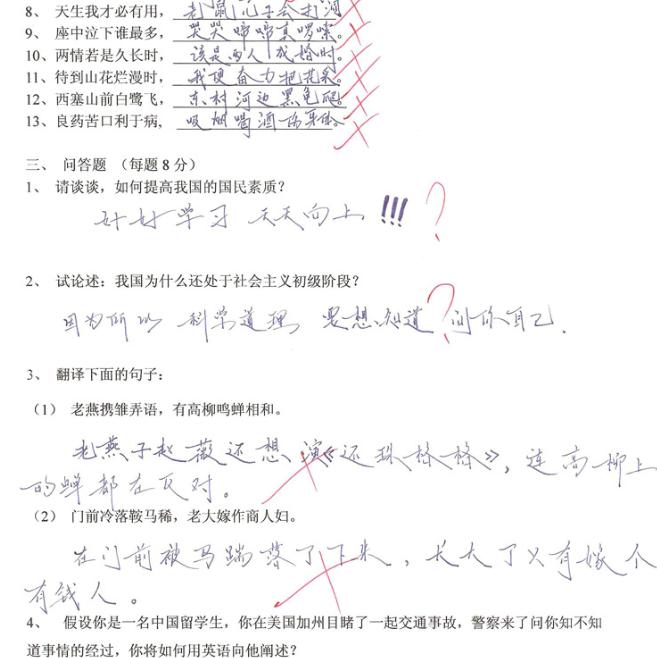 8、 天生我才必有用，老鼠儿子会打洞。
9、 座中泣下谁最多，哭哭啼啼真啰嗦。
10、两情若是久长时，该是两人成婚时。
11、待到山花烂漫时，我便奋力把花采。
12、西塞山前白鹭飞，东村河边黑龟爬。
13、良药苦口利于病，吸烟喝酒伤身体。
三、 问答题 （每题 8 分）
1、 请谈谈，如何提高我国的国民素质？
好好学习 天天向上 !!! ?
2、 试论述：我国为什么还处于社会主义初级阶段？
因为所以 科学道理 要想知道 问你自己. ?
3、 翻译下面的句子：
（1） 老燕携雏弄语，有高柳鸣蝉相和。
老燕子赵薇还想演《还珠格格》，连高柳上
的蝉都在反对。
（2） 门前冷落鞍马稀，老大嫁作商人妇。
在门前被马踹落了下来，长大了又有嫁个
有钱人。
4、 假设你是一名中国留学生，你在美国加州目睹了一起交通事故，警察来了问你知不知
道事情的经过，你将如何用英语向他阐述？